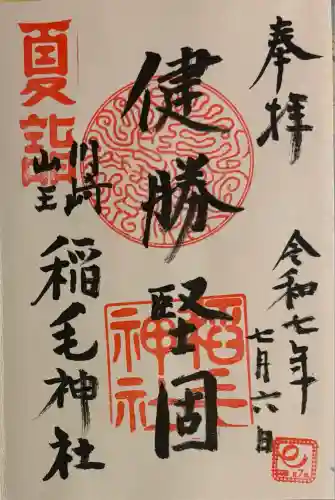 奉拝
令和七年
七月六日
健勝堅固
夏詣
川崎
山王
稲毛神社
稲毛
神社